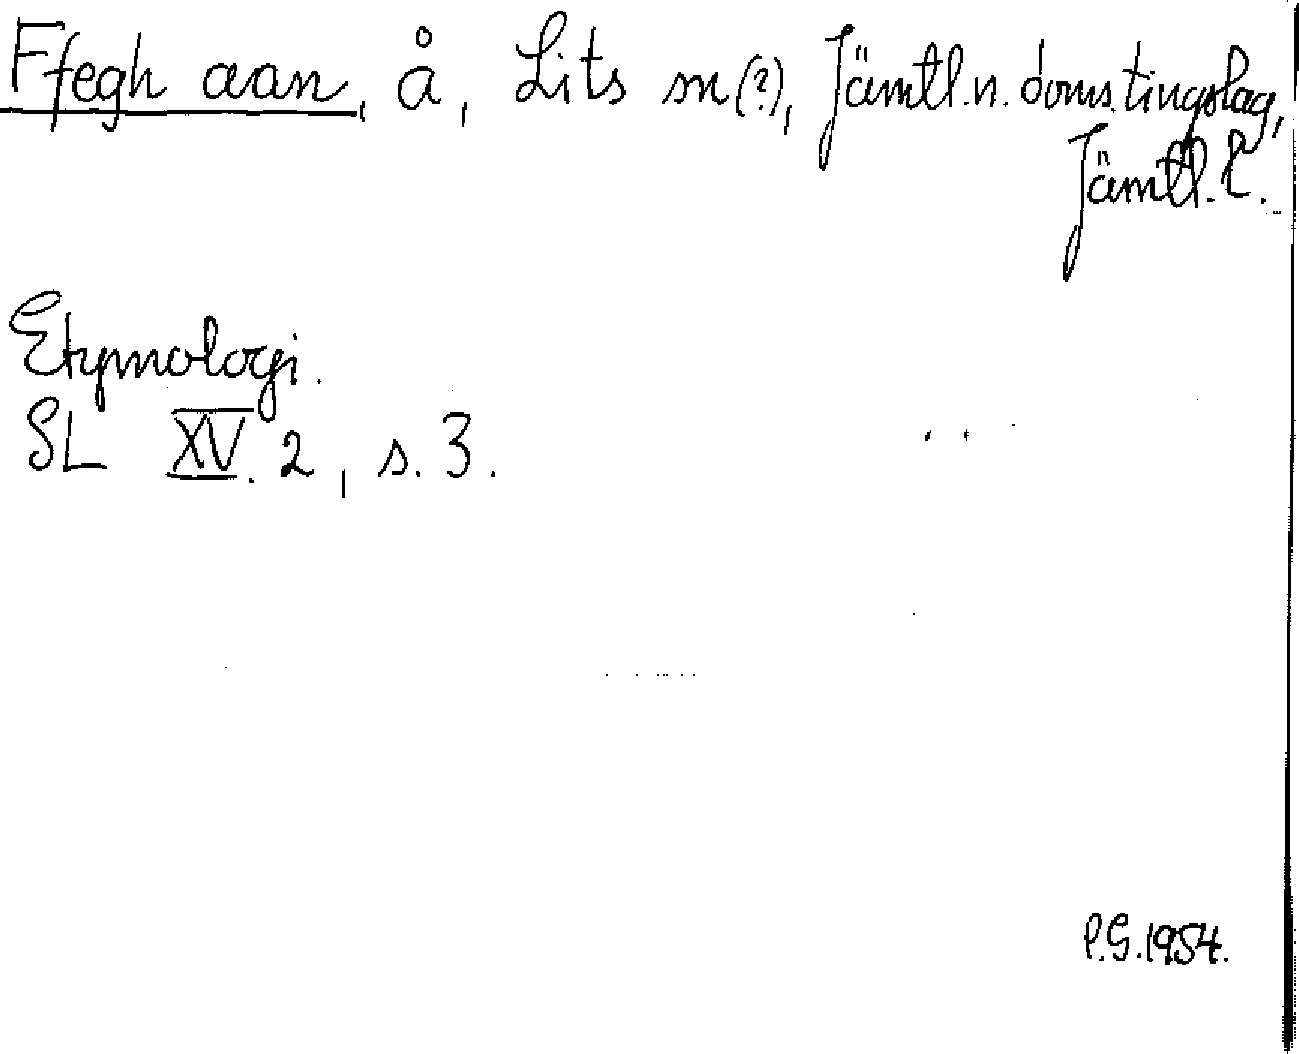 Ffegh aan, å, Lits sn(?), Jämtl.n. doms.tingslag,
Jämtl.l.
Etymologi.
SL XV.2, s.3.
P.G.1954.